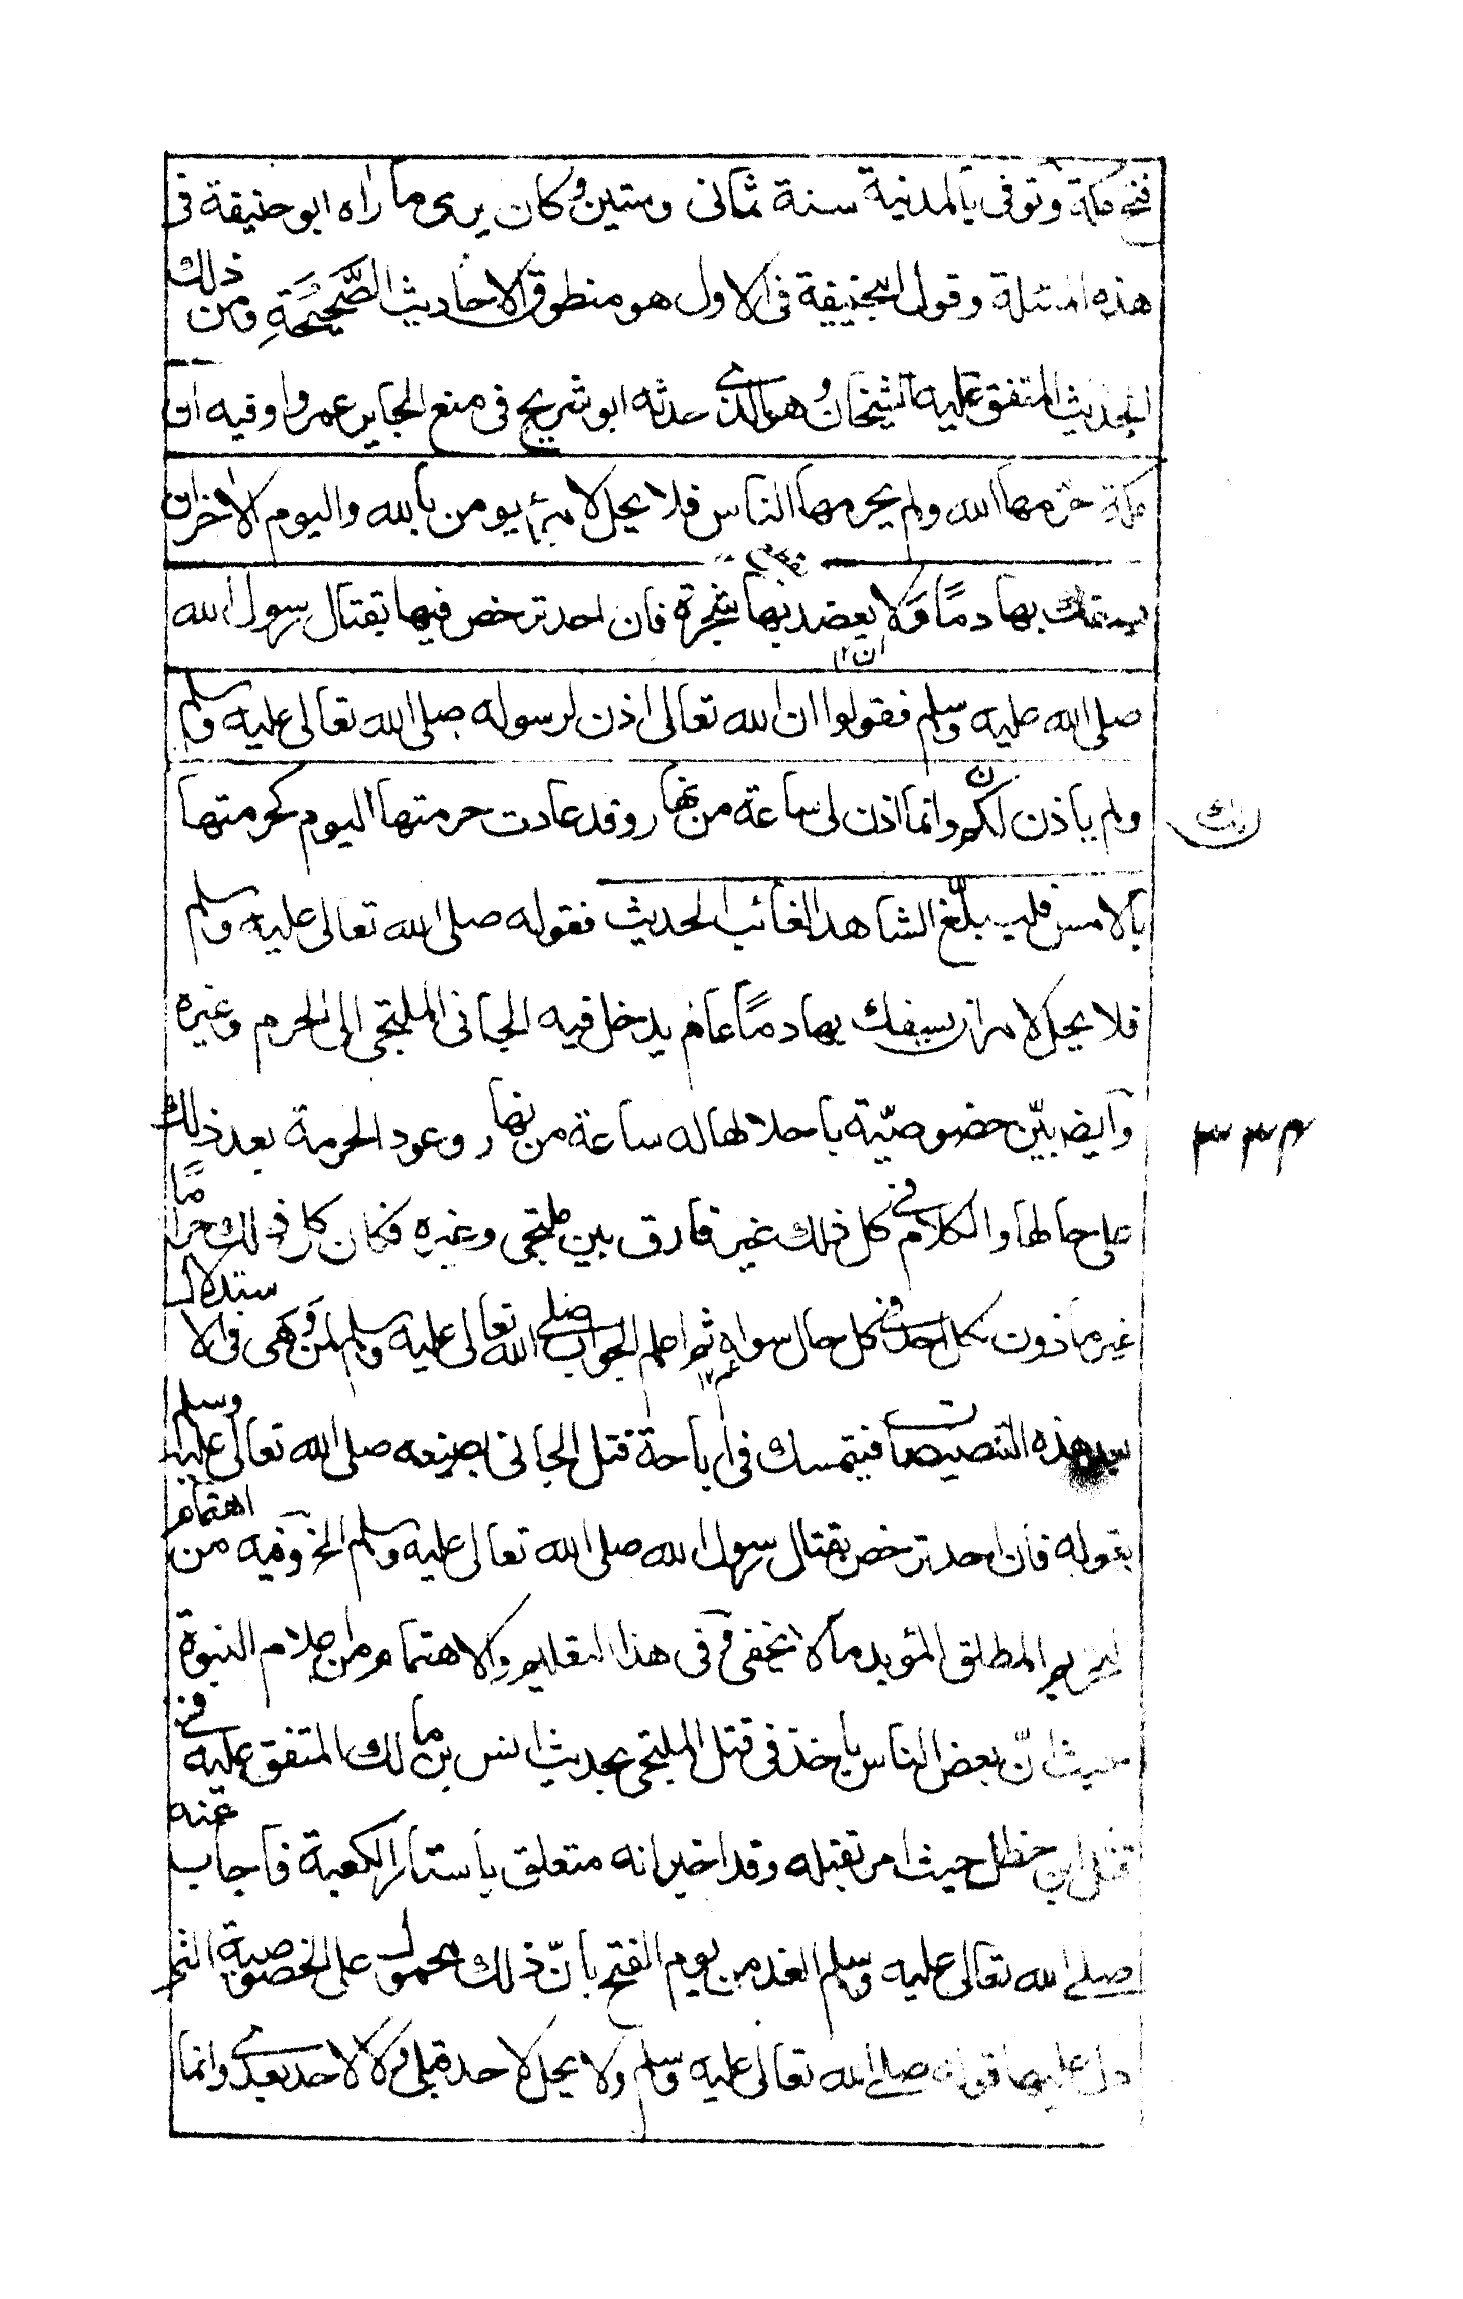 فتح مكة وتوفى بالمدنية سنة ثمانى وستين وكان يرى ما راه ابو حنيفة فى
هذه المسئلة وقول ابيحنيفة فى الاول هو منطوق الاحاديث الصَّحيحَةِ ومن ذلك
الحديث المتفق عليه الشيخان وهو الذى حدثه ابو شريح فى منع الجاير عمروا وفيه ان
مكة حرّمها الله ولم يحرمها الناس فلا يحل لامرئ يومن بالله واليوم الاخر ان
يسفك بها دمًا ولا يعضد بها شجرة فان احد ترخص فيها بقتال رسول الله
ان ١٢
صلى الله عليه وسلم فقولوا ان الله تعالى اذن لرسوله صلى الله تعالى عليه وسلم
ولم ياذن لكم وانما اذن لى ساعة من نهار وقد عادت حرمتها اليوم كحرمتها
بالامس فليبلّغ الشاهد الغائب الحديث فقوله صلى الله تعالى عليه وسلم
فلا يحل لامر ان يسفك بها دمًا عام يدخل فيه الجانى الملتجى الى الحرم وغيره
وآيضا بيّن خصوصيّة باحلالها له ساعة من نهار وعود الحرمة بعد ذلك
على حالها والكلام فى كل ذلك غير فارق بين ملتجى وغيره فكان كل ذلك حرامًا
غير ماذون لكل احد فى كل حال سواه ثم اعلم الجواب صلى الله تعالى عليه وسلم لمن وهى فى الاستدلال
بعد هذه التنصيصات فيتمسك فى اباحة قتل الجانى بصنيعه صلى الله تعالى عليه وسلم
بقوله فان احد ترخص بقتال رسول الله صلى الله تعالى عليه وسلم الخ وفيه من اهتمام
التحريم المطلق المؤبد ما لا يخفى وفى هذا التعليم والاهتمام من علام النبوة
حيث انّ بعض الناس ياخذ فى قتل الملتجى بحديث انس بن مالك المتفق عليه فى
قتل ابن خطل حيث امر بقتله وقد اخبر انه متعلق باستار الكعبة فاجاب عنه
صلى الله تعالى عليه وسلم الغد من يوم الفتح بانّ ذلك محمول على الخصوصية التى
دل عليها قوله صلى الله تعالى عليه وسلم ولا يحل لاحد قبلى ولا لاحد بعدى وانما